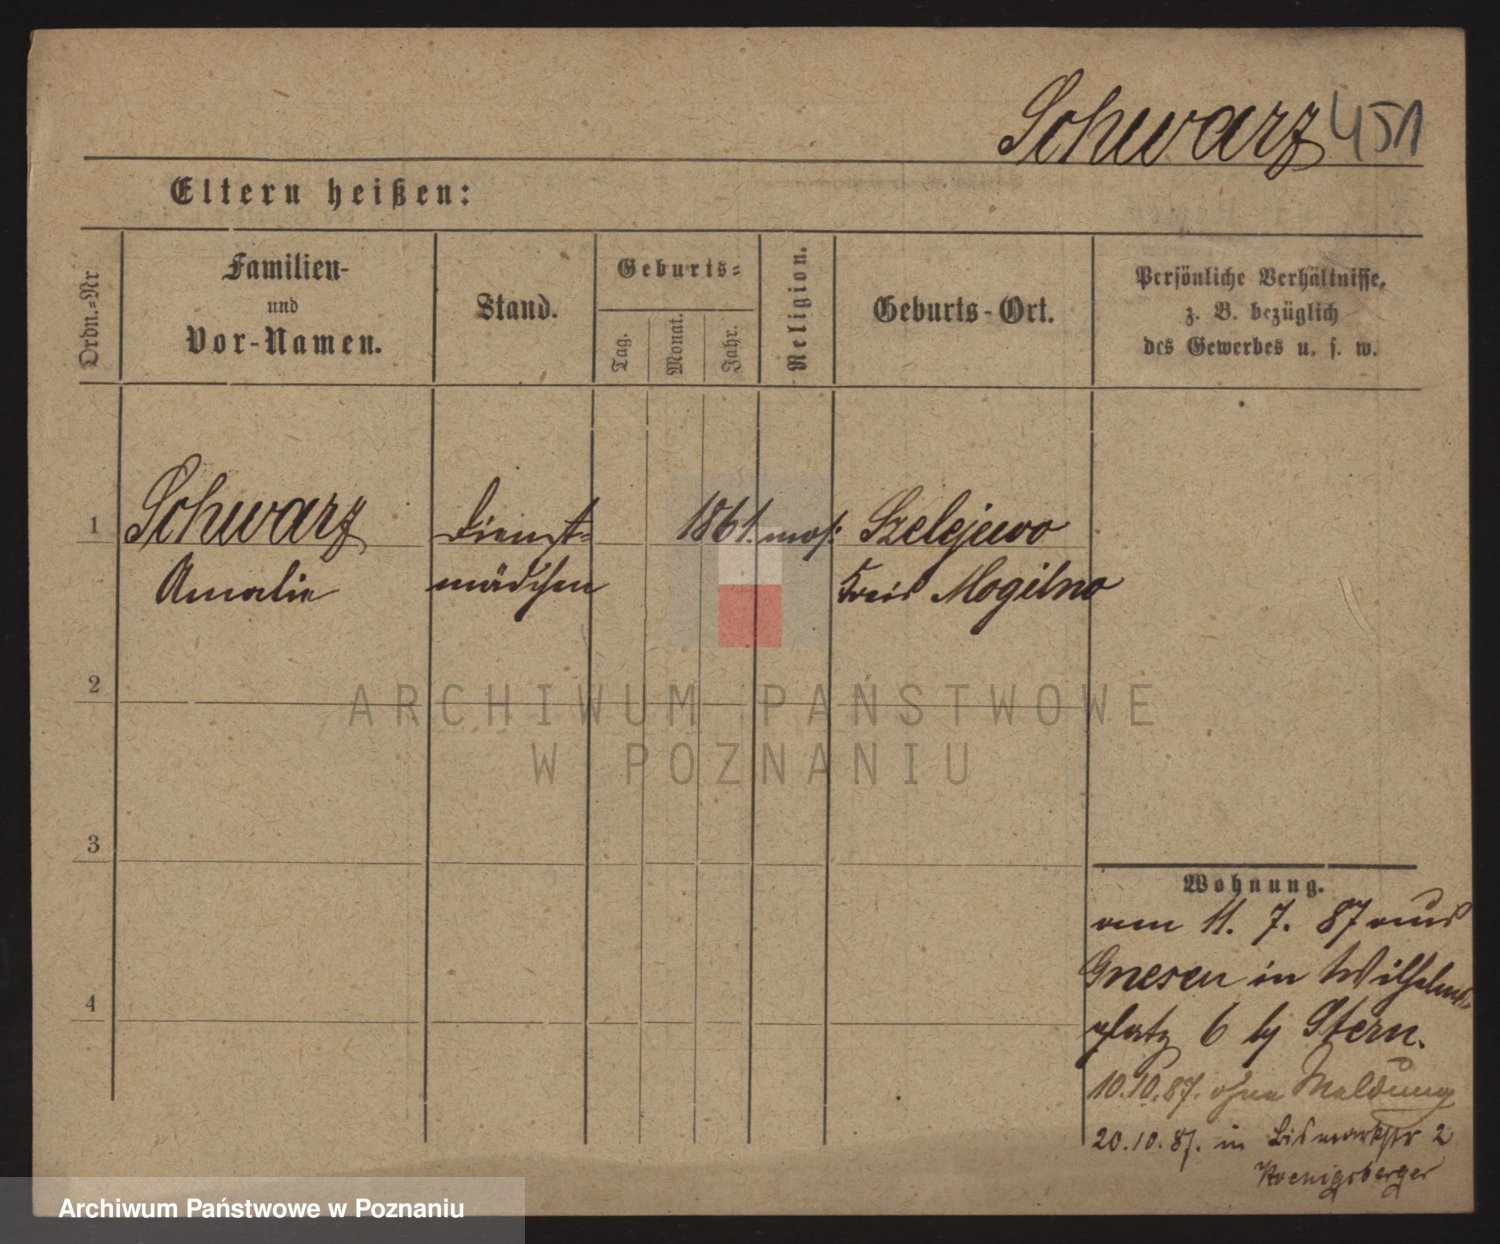 Schwarz 451
Eltern heißen:
Ordn.-Nr
Familien-
und
Vor-Namen.
Stand.
Geburts-
Tag.
Monat.
Jahr.
Religion.
Geburts-Ort.
Persönliche Verhältnisse,
z. B. bezüglich
des Gewerbes u. s. w.
1 Schwarz Dienst- 1861. mos: Szelejewo
Amalie mädchen Kreis Mogilno
2
3
4
Wohnung.
am 11. 7. 87 aus
Gnesen in Wilhelms-
platz 6 bj Stern.
10.10.87. ohne Meldung
20.10.87. in Bismarkstr 2
Koenigsberger
ARCHIWUM PAŃSTWOWE
W POZNANIU
Archiwum Państwowe w Poznaniu